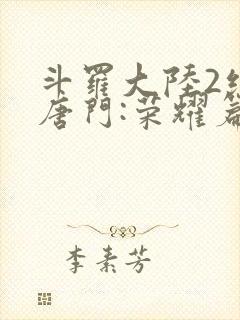 斗羅大陸2絕
唐門:榮耀篇
李素芳